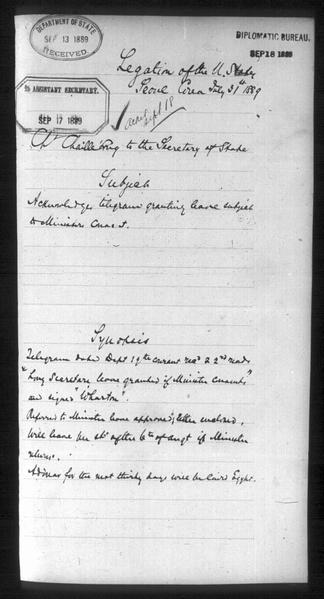 DEPARTMENT OF STATE
SEP 13 1889
RECEIVED
DIPLOMATIC BUREAU.
SEP 18 1889
Legation of the U. States
Seoul Corea July 31st 1889
ASSISTANT SECRETARY.
SEP 17 1889
Sept 18
Ch Chaillé Long to the Secretary of State
Subject
Acknowledges telegram granting leave subject
to Minister consent.
Synopsis
Telegram date Dept 19th currant rec'd 22nd reads
"Long Secretary leave granted if Minister consents"
and signed "Wharton".
Referred to Minister leave approved, letter enclosed,
Will leave for after 6th of Augt if Minister
Address for the next thirty days will be Cairo Egypt.